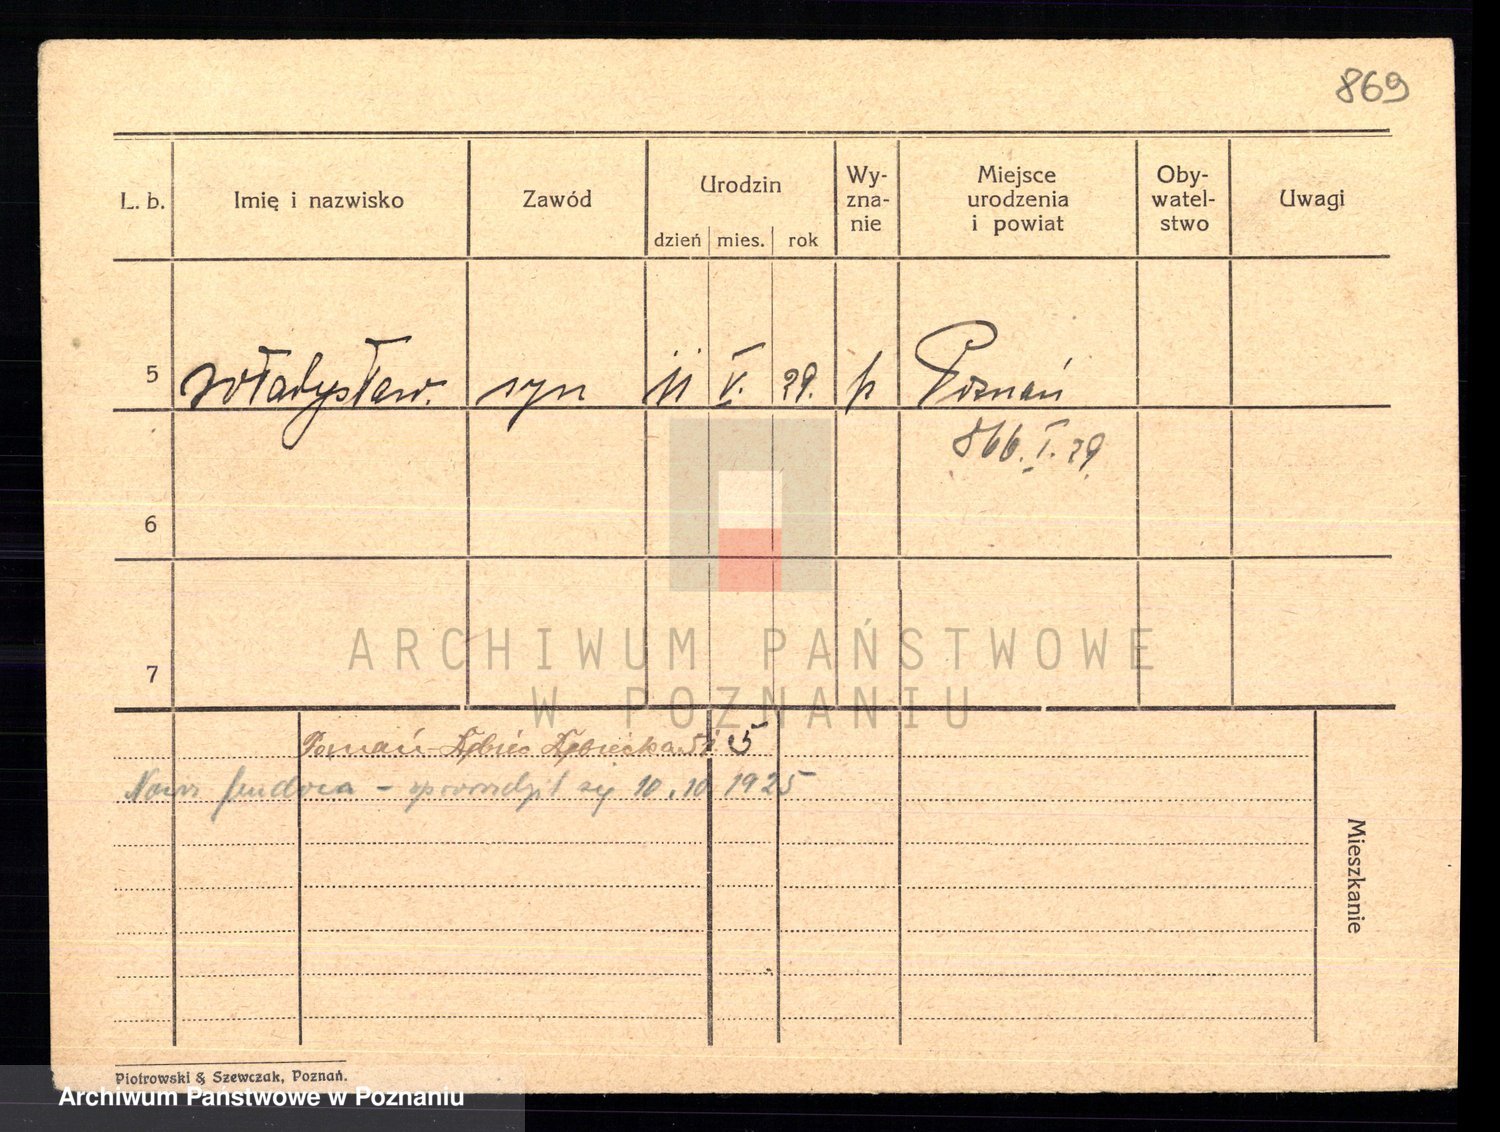 869
L. b. Imię i nazwisko Zawód Urodzin dzień mies. rok Wy-zna-nie Miejsce urodzenia i powiat Oby-watel-stwo Uwagi
5 Władysław syn 11 V. 29. k Poznań
866. I. 29
6
7
ARCHIWUM PAŃSTWOWE
W POZNANIU
Poznań-Dębiec Dębiecka 5
Nowa budowa - sprowadził się 10.10 1925
Mieszkanie
Piotrowski & Szewczak, Poznań.
Archiwum Państwowe w Poznaniu